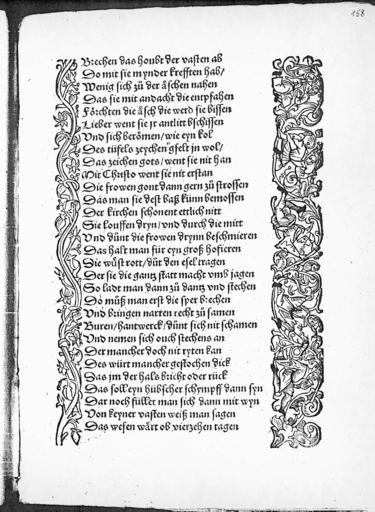 158
Brechen das houbt der vasten ab
Do mit sie mynder krefften hab/
Wenig sich zů der äschen nahen
Das sie mit andacht die entpfahen
Förchten die äsch die werd sie bissen
Lieber went sie jr antlitt bschissen
Vnd sich berömen/wie eyn kol
Des tüfels zeychen gfelt jn wol/
Das zeichen gots/went sie nit han
Mit Christo went sie nit erstan
Die frowen gont dann gern zů strossen
Das man sie dest baß künn bemossen
Der kirchen schonent ettlich nitt
Sie louffen dryn/vnd durch die mitt
Vnd dünt die frowen drynn beschmieren
Das halt man für eyn groß hofieren
Die wüst rott/düt den esel tragen
Der sie die gantz statt macht vmß jagen
So ladt man dann zů dantz vnd stechen
Do můß man erst die sper brechen
Vnd bringen narren recht zů samen
Buren/hantwerck/dünt sich nit schamen
Vnd nemen sich ouch stechens an
Der mancher doch nit ryten kan
Des würt mancher gestochen dick
Das jm der hals bricht oder rück
Das soll eyn hübscher schympff dann syn
Dar noch füllet man sich dann mit wyn
Von keyner vasten weiß man sagen
Das wesen wärt ob vierzehen tagen